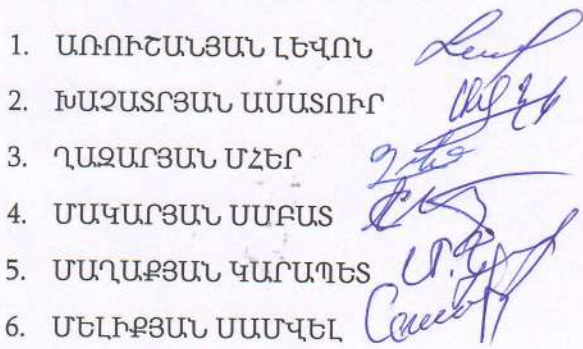 1. ԱՌՈՒՇԱՆՅԱՆ ԼԵՎՈՆ
2. ԽԱՉԱՏՐՅԱՆ ԱՍԱՏՈՒՐ
3. ՂԱԶԱՐՅԱՆ ՄՀԵՐ
4. ՄԱԿԱՐՅԱՆ ՍՄԲԱՏ
5. ՄԱՂԱՔՅԱՆ ԿԱՐԱՊԵՏ
6. ՄԵԼԻՔՅԱՆ ՍԱՄՎԵԼ